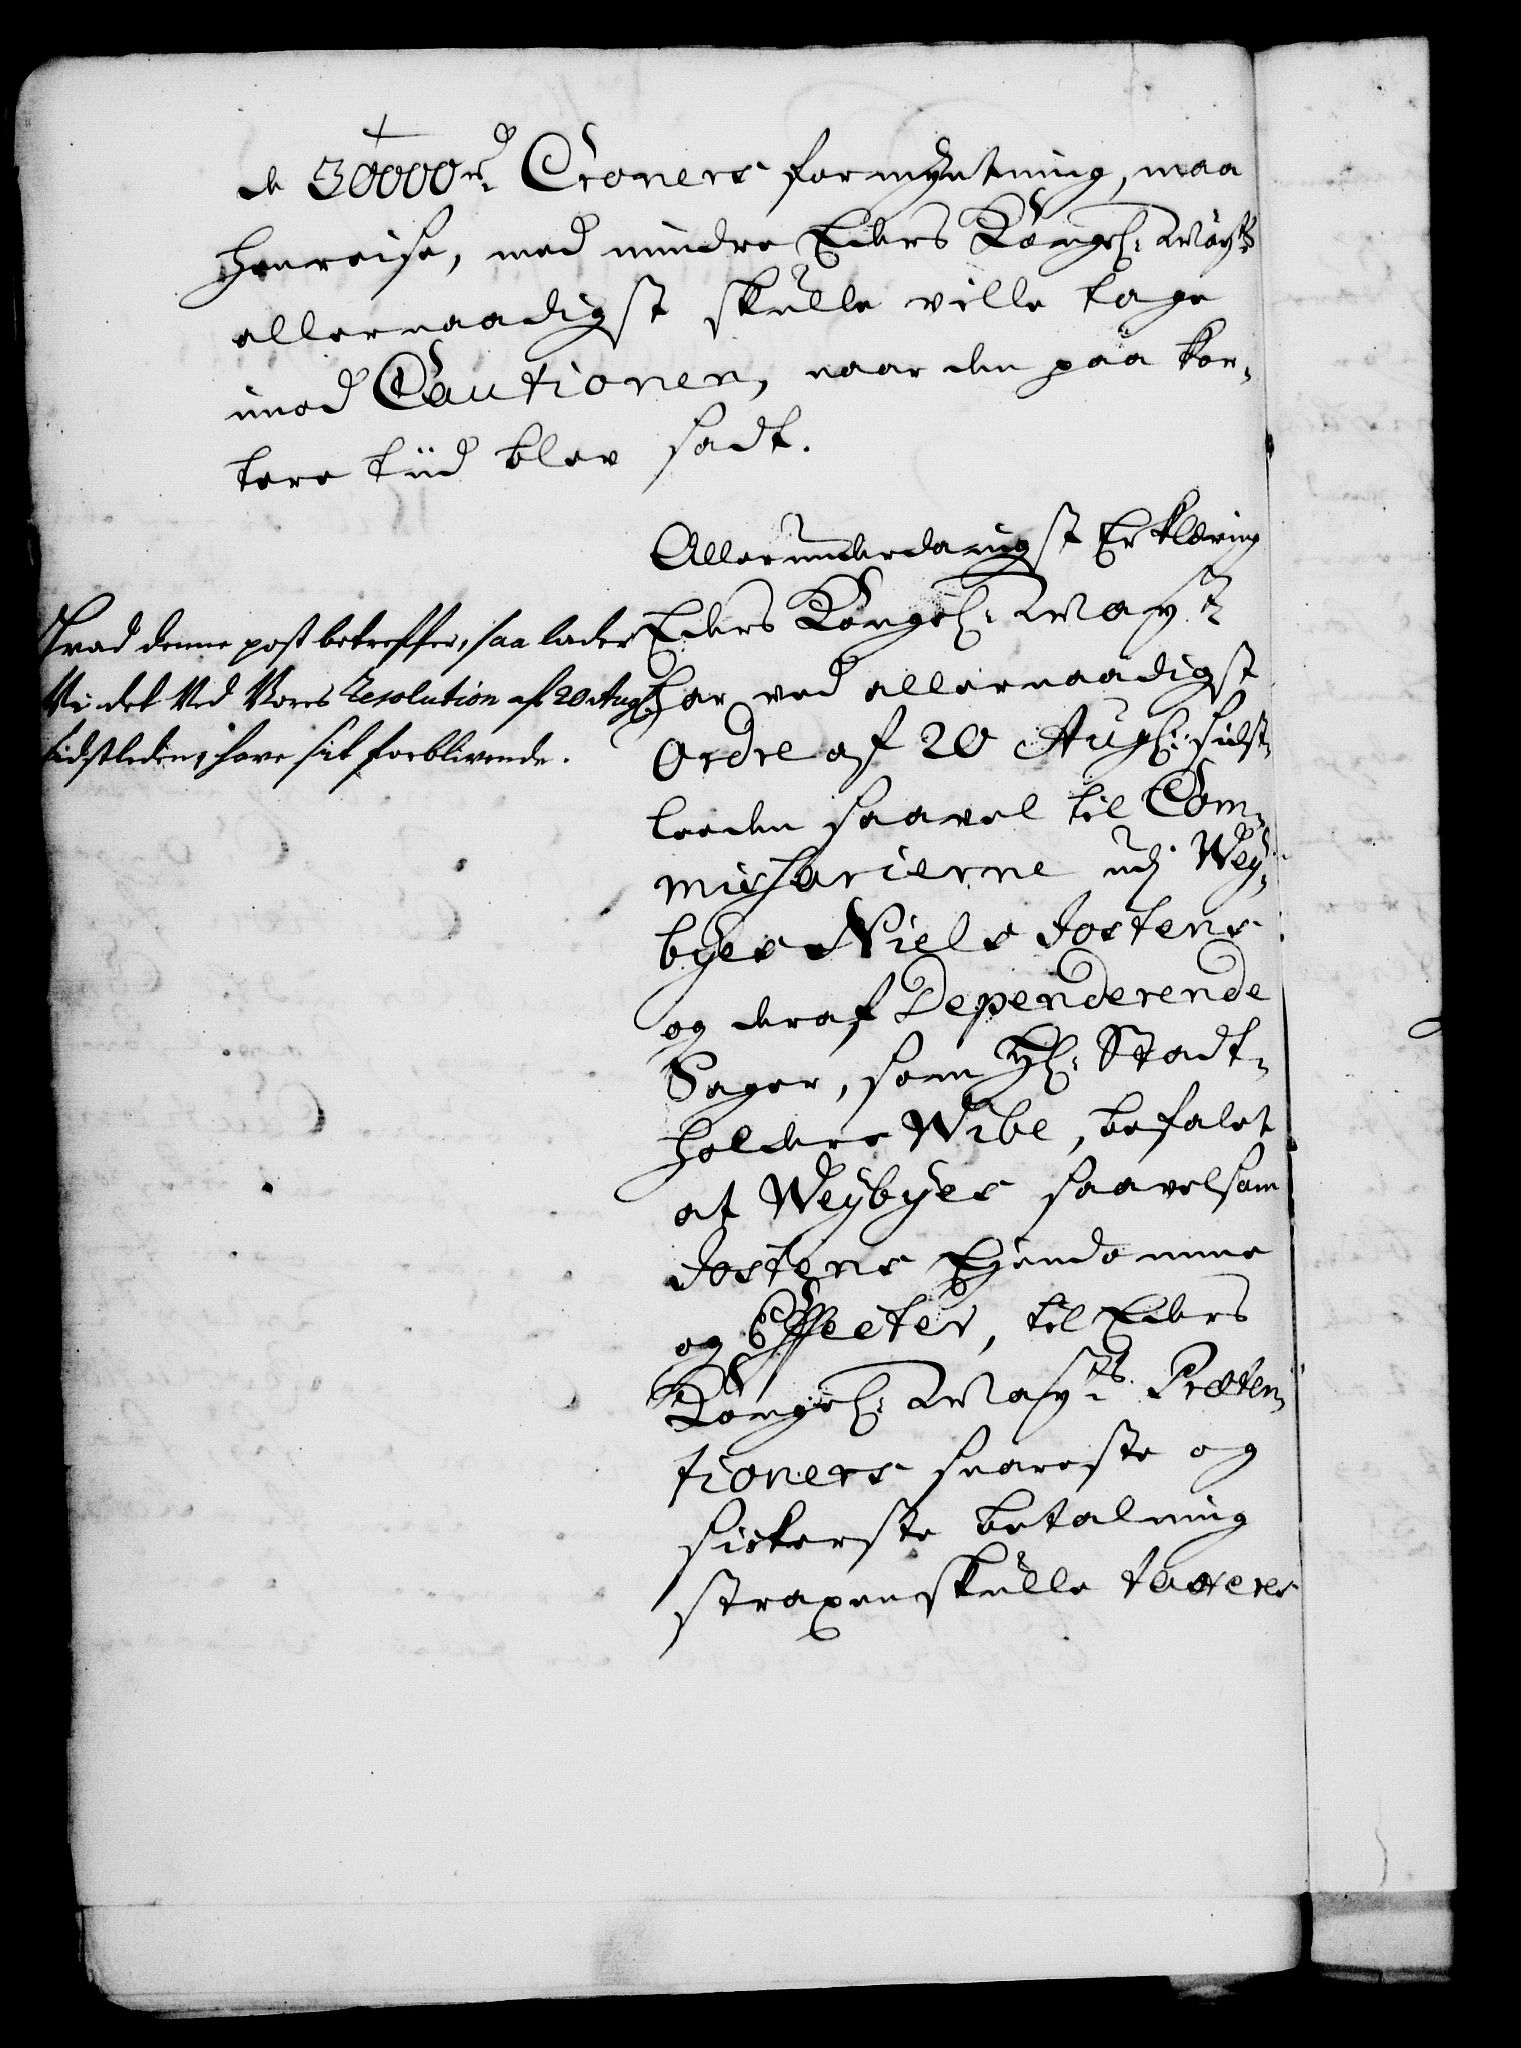 de 30000 rd. Croners formyntning, maa
henreise, med mindre Eders Kongel: Mayts
allernaadigst skulle ville tage
imod Cautionen, naar den paa kor-
tere tiid blev sadt.
Allerunderdanigst Erklæring
Eders Kongel: Mayt
har ved allernaadigst
Ordre af 20 Aug: sidst-
leeden saavel til Com-
missarierne udj Wey-
byes Niels Jostens
og deraf Dependerende
Sager, som H: Stadt-
holdere Wibe, befalet
at Weybyes saavelsom
Jostens Ejendomme
og Effecter, til Eders
Kongel: Mayts Præten-
tioners snareste og
sickerste betalning
straxen skulle taxeres
Hvad denne post betreffer, saa lader
Vi det Ved Vores Resolution af 20 Aug:
sidstleden, have sit forblivende.